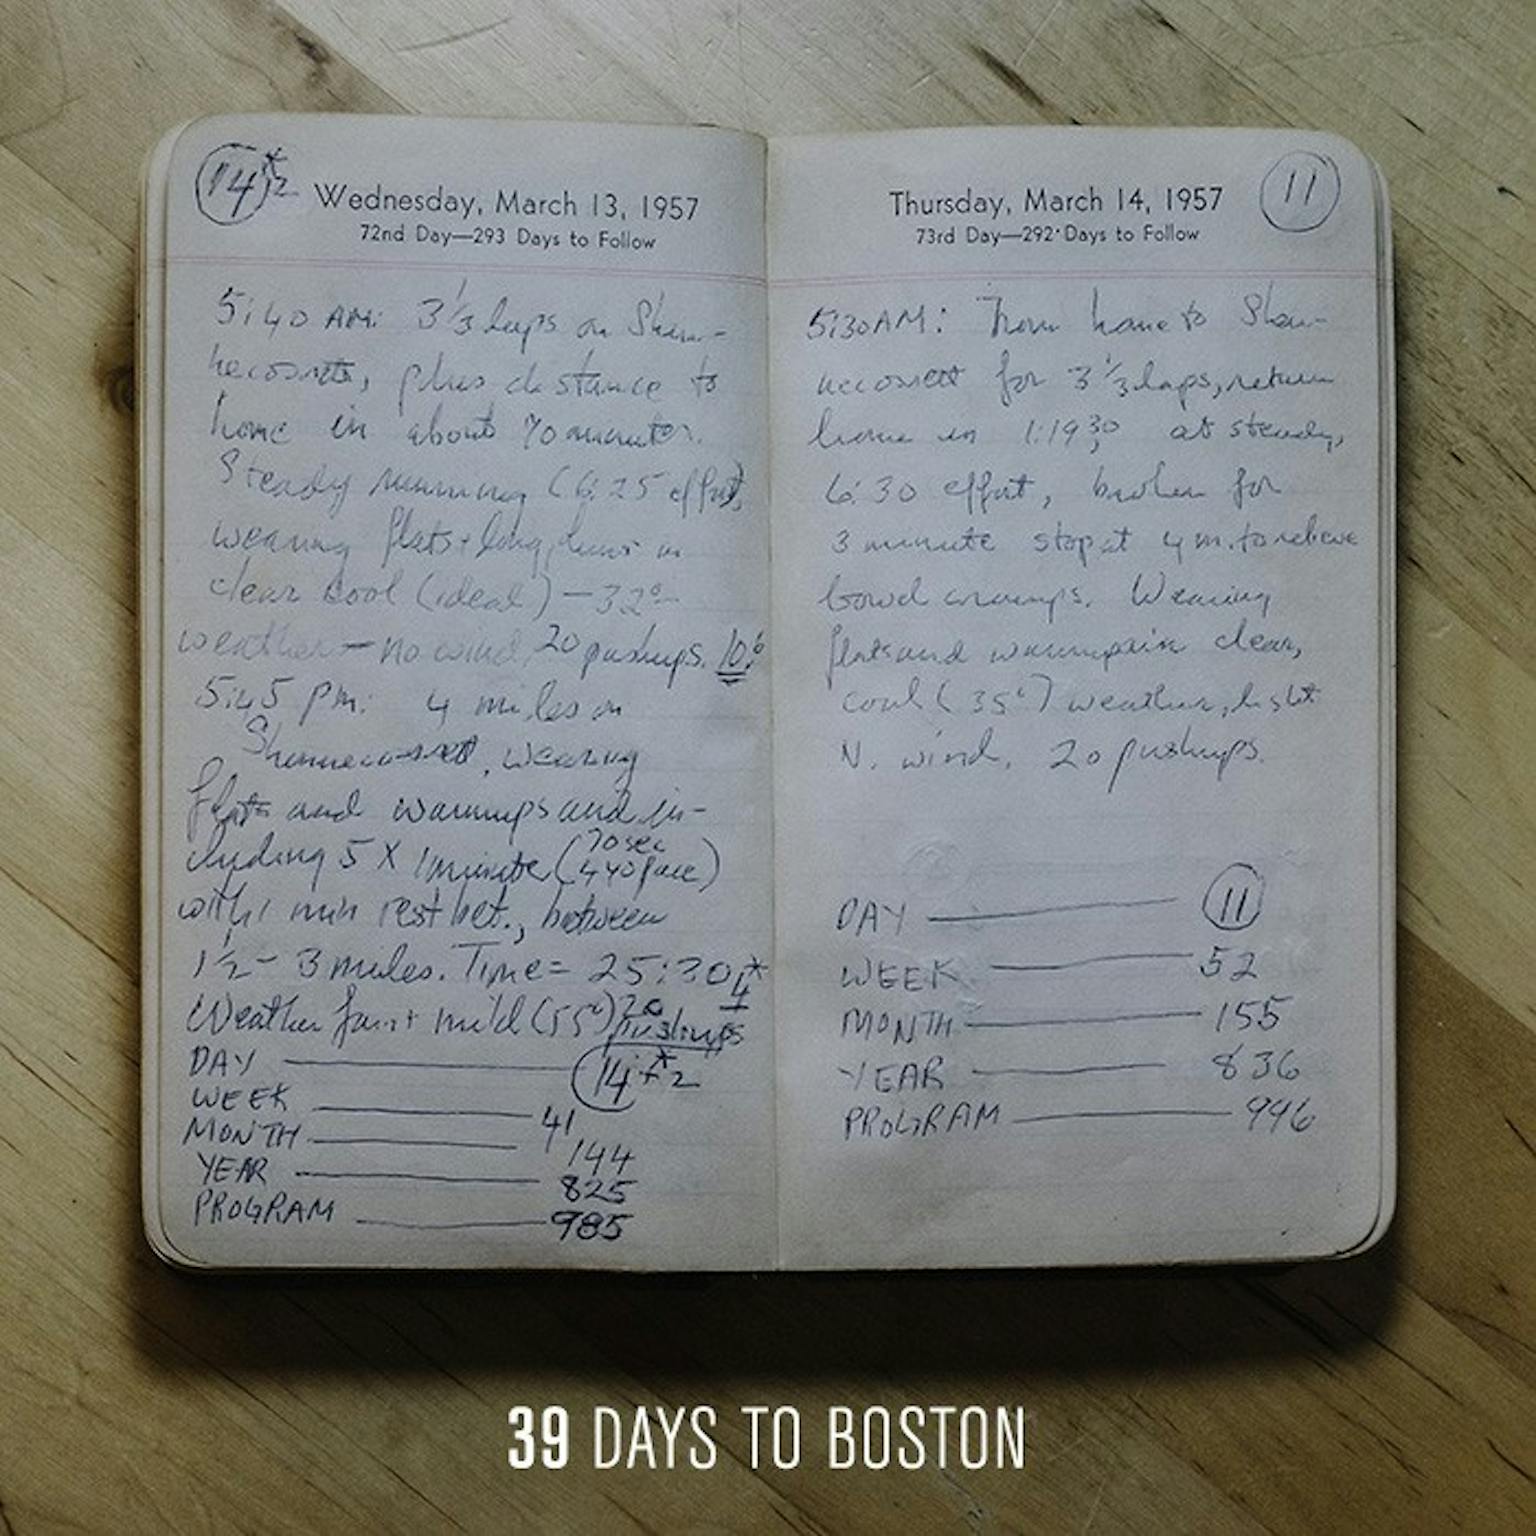 14 *2
Wednesday, March 13, 1957
72nd Day—293 Days to Follow
5:40 AM: 3 1/3 laps on Shen-
necossett, plus distance to
home in about 70 minutes.
Steady running (6:25 effort),
wearing flats + long johns in
clear cool (ideal) – 32° –
weather – no wind. 20 pushups. 10.
5:45 pm: 4 miles on
Shennecossett, wearing
flats and warmups and in-
cluding 5 X 1 minute (70 sec
440 pace)
with 1 min rest bet., between
1 1/2 – 3 miles. Time = 25:30 4*
Weather fair + mild (55°) 20
pushups
DAY — 14 + *2
WEEK — 41
MONTH — 144
YEAR — 825
PROGRAM — 985
Thursday, March 14, 1957
11
73rd Day—292 Days to Follow
5:30 AM: From home to Shen-
necossett for 3 1/3 laps, return
home in 1:19:30 at steady,
6:30 effort, broken for
3 minute stop at 4 m. to relieve
bowel cramps. Wearing
flats and warmups in clear,
cool (35°) weather, light
N. wind. 20 pushups.
DAY — 11
WEEK — 52
MONTH — 155
YEAR — 836
PROGRAM — 996
39 DAYS TO BOSTON